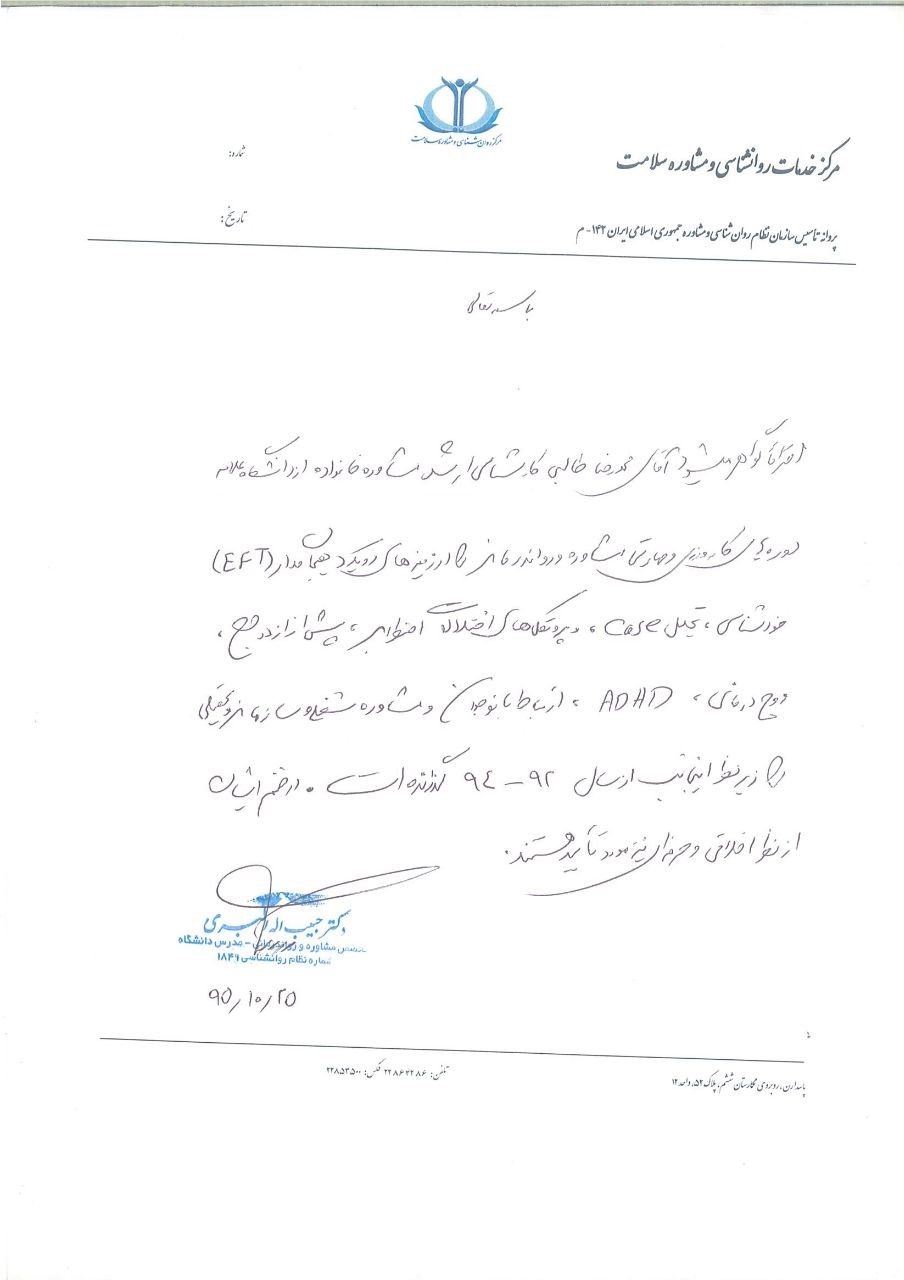 مرکز روان شناسی و مشاوره سلامت
مرکز خدمات روانشناسی و مشاوره سلامت
شماره:
تاریخ:
پروانه تأسیس سازمان نظام روان شناسی و مشاوره جمهوری اسلامی ایران ۱۴۲- م
باسمه تعالی
احتراماً گواهی میشود آقای محمدرضا طالبی کارشناسی ارشد مشاوره خانواده از دانشگاه علامه
دوره های کارورزی و مهارتی مشاوره و رواندرمانی را در زمینه های رویکرد هیجان مدار (EFT)
خودشناسی، تحلیل case، پروتکل‌های اختلالات اضطرابی، پیش از ازدواج،
زوج درمانی، ADHD، ارتباط با نوجوان و مشاوره شغلی و سازمانی و تحصیلی
را زیر نظر اینجانب از سال ۹۲-۹۴ گذرانده است. در ضمن ایشان
از نظر اخلاقی و حرفه ای نیز مورد تأیید هستند.
دکتر حبیب اله اکبری
متخصص مشاوره و رواندرمانی - مدرس دانشگاه
شماره نظام روانشناسی ۱۸۴۹
۹۵/۱۰/۲۵
پاسداران، روبروی نگارستان ششم، پلاک ۵۲، واحد ۱۲
تلفن: ۲۲۸۶۲۲۸۶ فکس: ۲۲۸۵۳۵۰۰